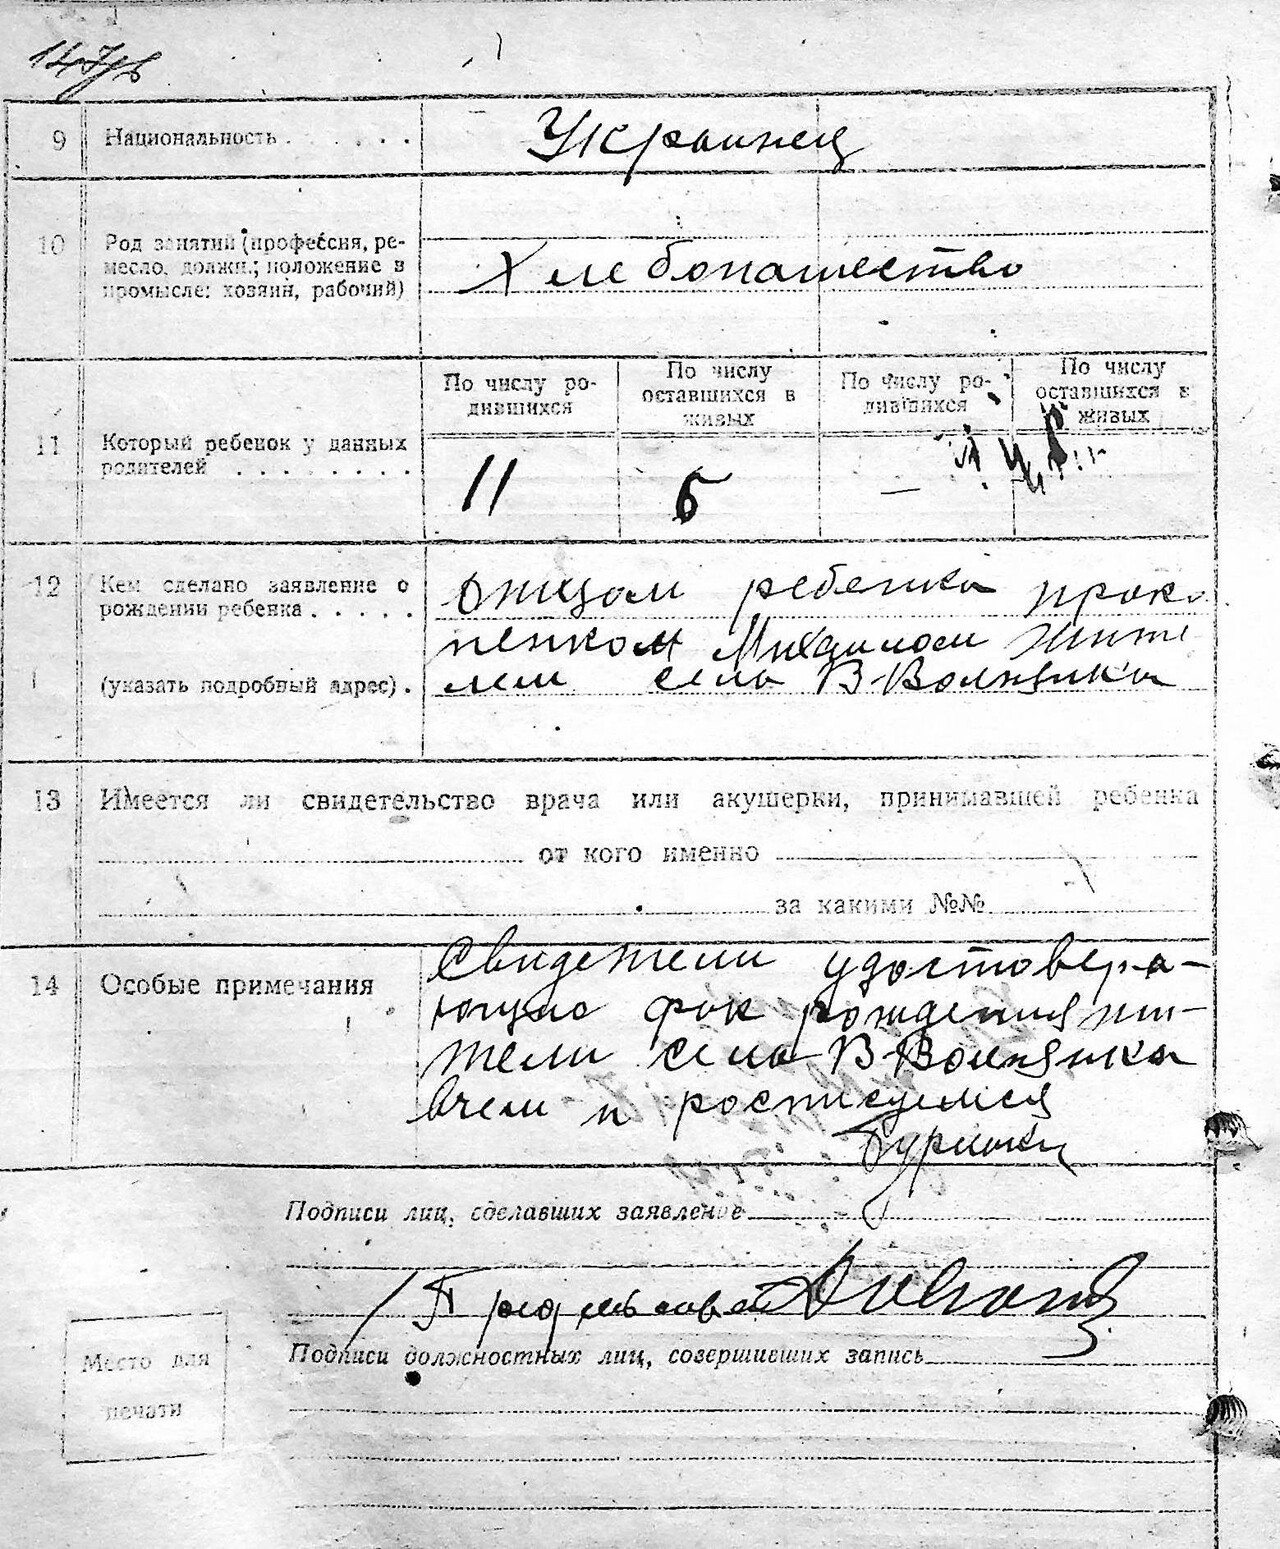 147/8
9 Национальность . . . . . . Украинец
10 Род занятий (профессия, ре-
месло, должн.; положение в
промысле: хозяин, рабочий)
Хлебопашество
По числу ро-
дившихся
По числу
оставшихся в
живых
По числу ро-
дившихся
По числу
оставшихся в
живых
11 Который ребенок у данных
родителей . . . . . . . .
11 6 —
12 Кем сделано заявление о
рождении ребенка . . . . .
(указать подробный адрес) .
Отцом ребенка Проко
пенком Михаилом жите
лем села В-Волнянка
13 Имеется ли свидетельство врача или акушерки, принимавшей ребенка
от кого именно
за какими №№
14 Особые примечания
Свидетели удостоверя-
ющие фак рождения жи-
тели села В-Волнянка
в чем и росписуемся
Подписи лиц, сделавших заявление
Подписи должностных лиц, совершивших запись
Место для
печати